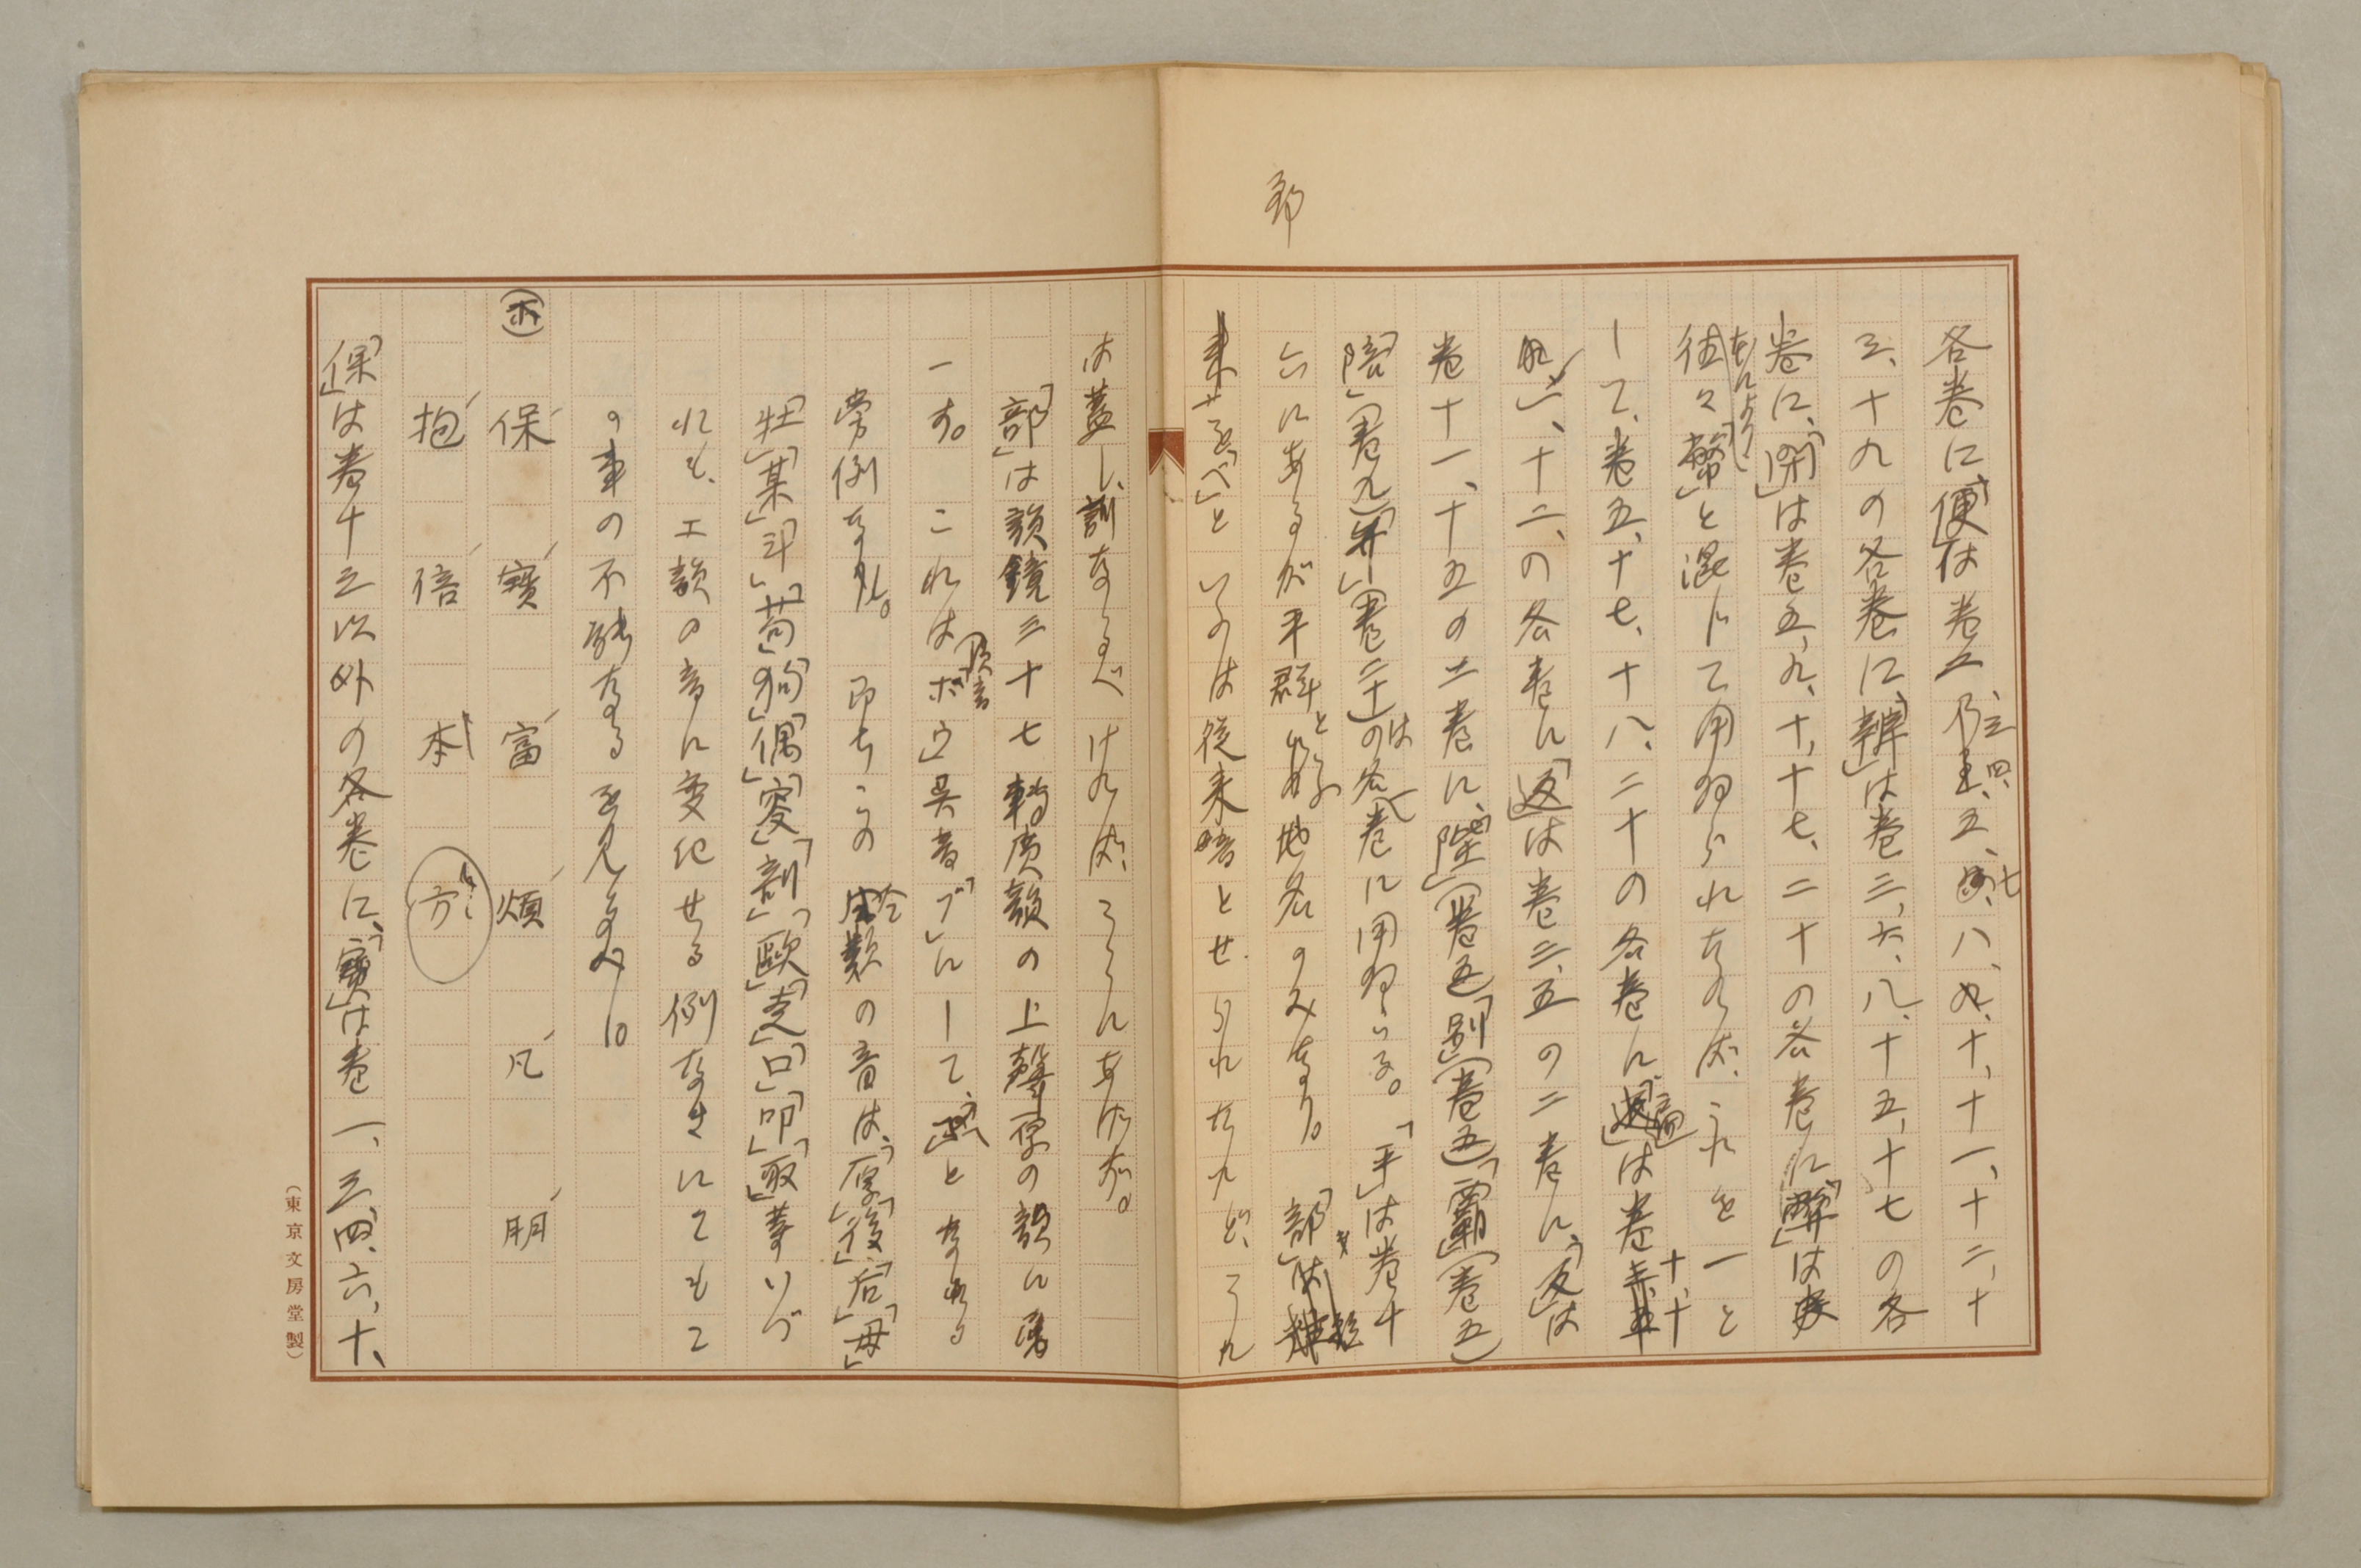 部
各巻に、「便」は巻二、三、四、五、七、八、九、十、十一、十二、十
三、十九の各巻に、「辨」は巻三、六、八、十五、十七の各
巻に、「弊」は巻五、九、十、十七、二十の各巻に「弊」は
本により往々「幣」と混じて用ゐられたれば、これを一と
して、巻五、十七、十八、二十の各巻に、「遍」は巻十、十
一、十二、の各巻に「返」は巻三、五の二巻に、「反」は
巻十一、十五の二巻に、「陛」(巻五)「別」(巻五)「覇」(巻五)
「陪」(巻九)「弁」(巻二十)は各巻に用ゐらる。「平」は巻十
六にあるが平群といふ地名のみなり。「部」は
を「べ」といふは従来音とせられたれど、これ
は蓋し、訓なるべければ、ここにあげず。
「部」は韻鏡三十七轉廣韻の上聲厚の韻に属
す。これは漢音「ボウ」呉音「ブ」にして、「べ」となれる
常例なし。即ちこの類の音は、「厚」「後」「后」「母」
「牡」「某」「斗」「苟」「狗」「偶」「叟」「剖」「歐」「走」「口」「叩」「取」等いづ
れも、エ韻の音に変化せる例なきにてもこ
の事の不稽なるを見るべし。
(ホ)
保 寳 富 煩 凡 朋
抱 倍 本 方
「保」は巻十三以外の各巻に、「寳」は巻一、三、四、六、十、
(東京文房堂製)